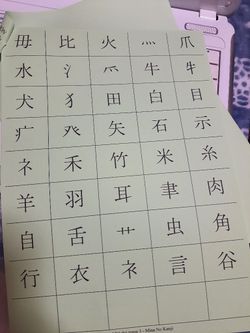 毋 比 火 灬 爪
水 氵 爫 牛 牜
犬 犭 田 白 目
疒 癶 矢 石 示
礻 禾 竹 米 糸
羊 羽 耳 聿 肉
自 舌 艹 虫 角
行 衣 衤 言 谷